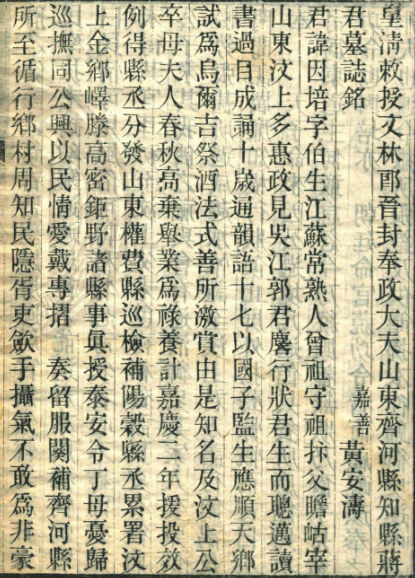 皇淸敕授文林郎晉封奉政大夫山東齊河縣知縣蔣
君墓誌銘
嘉善 黃安濤
君諱因培字伯生江蘇常熟人曾祖守祖抔父瞻岵宰
山東汶上多惠政見吳江郭君麐行狀君生而聰邁讀
書過目成誦十歲通韻語十七以國子監生應順天鄉
試爲烏爾吉祭酒法式善所激賞由是知名及汶上公
卒母夫人春秋高棄舉業爲祿養計嘉慶二年援投效
例得縣丞分發山東權費縣巡檢補陽穀縣丞累署汶
上金鄉嶧滕高密鉅野諸縣事眞授泰安令丁母憂歸
巡撫同公興以民情愛戴專摺 奏留服闋補齊河縣
所至循行鄉村周知民隱胥吏斂手攝氣不敢爲非豪